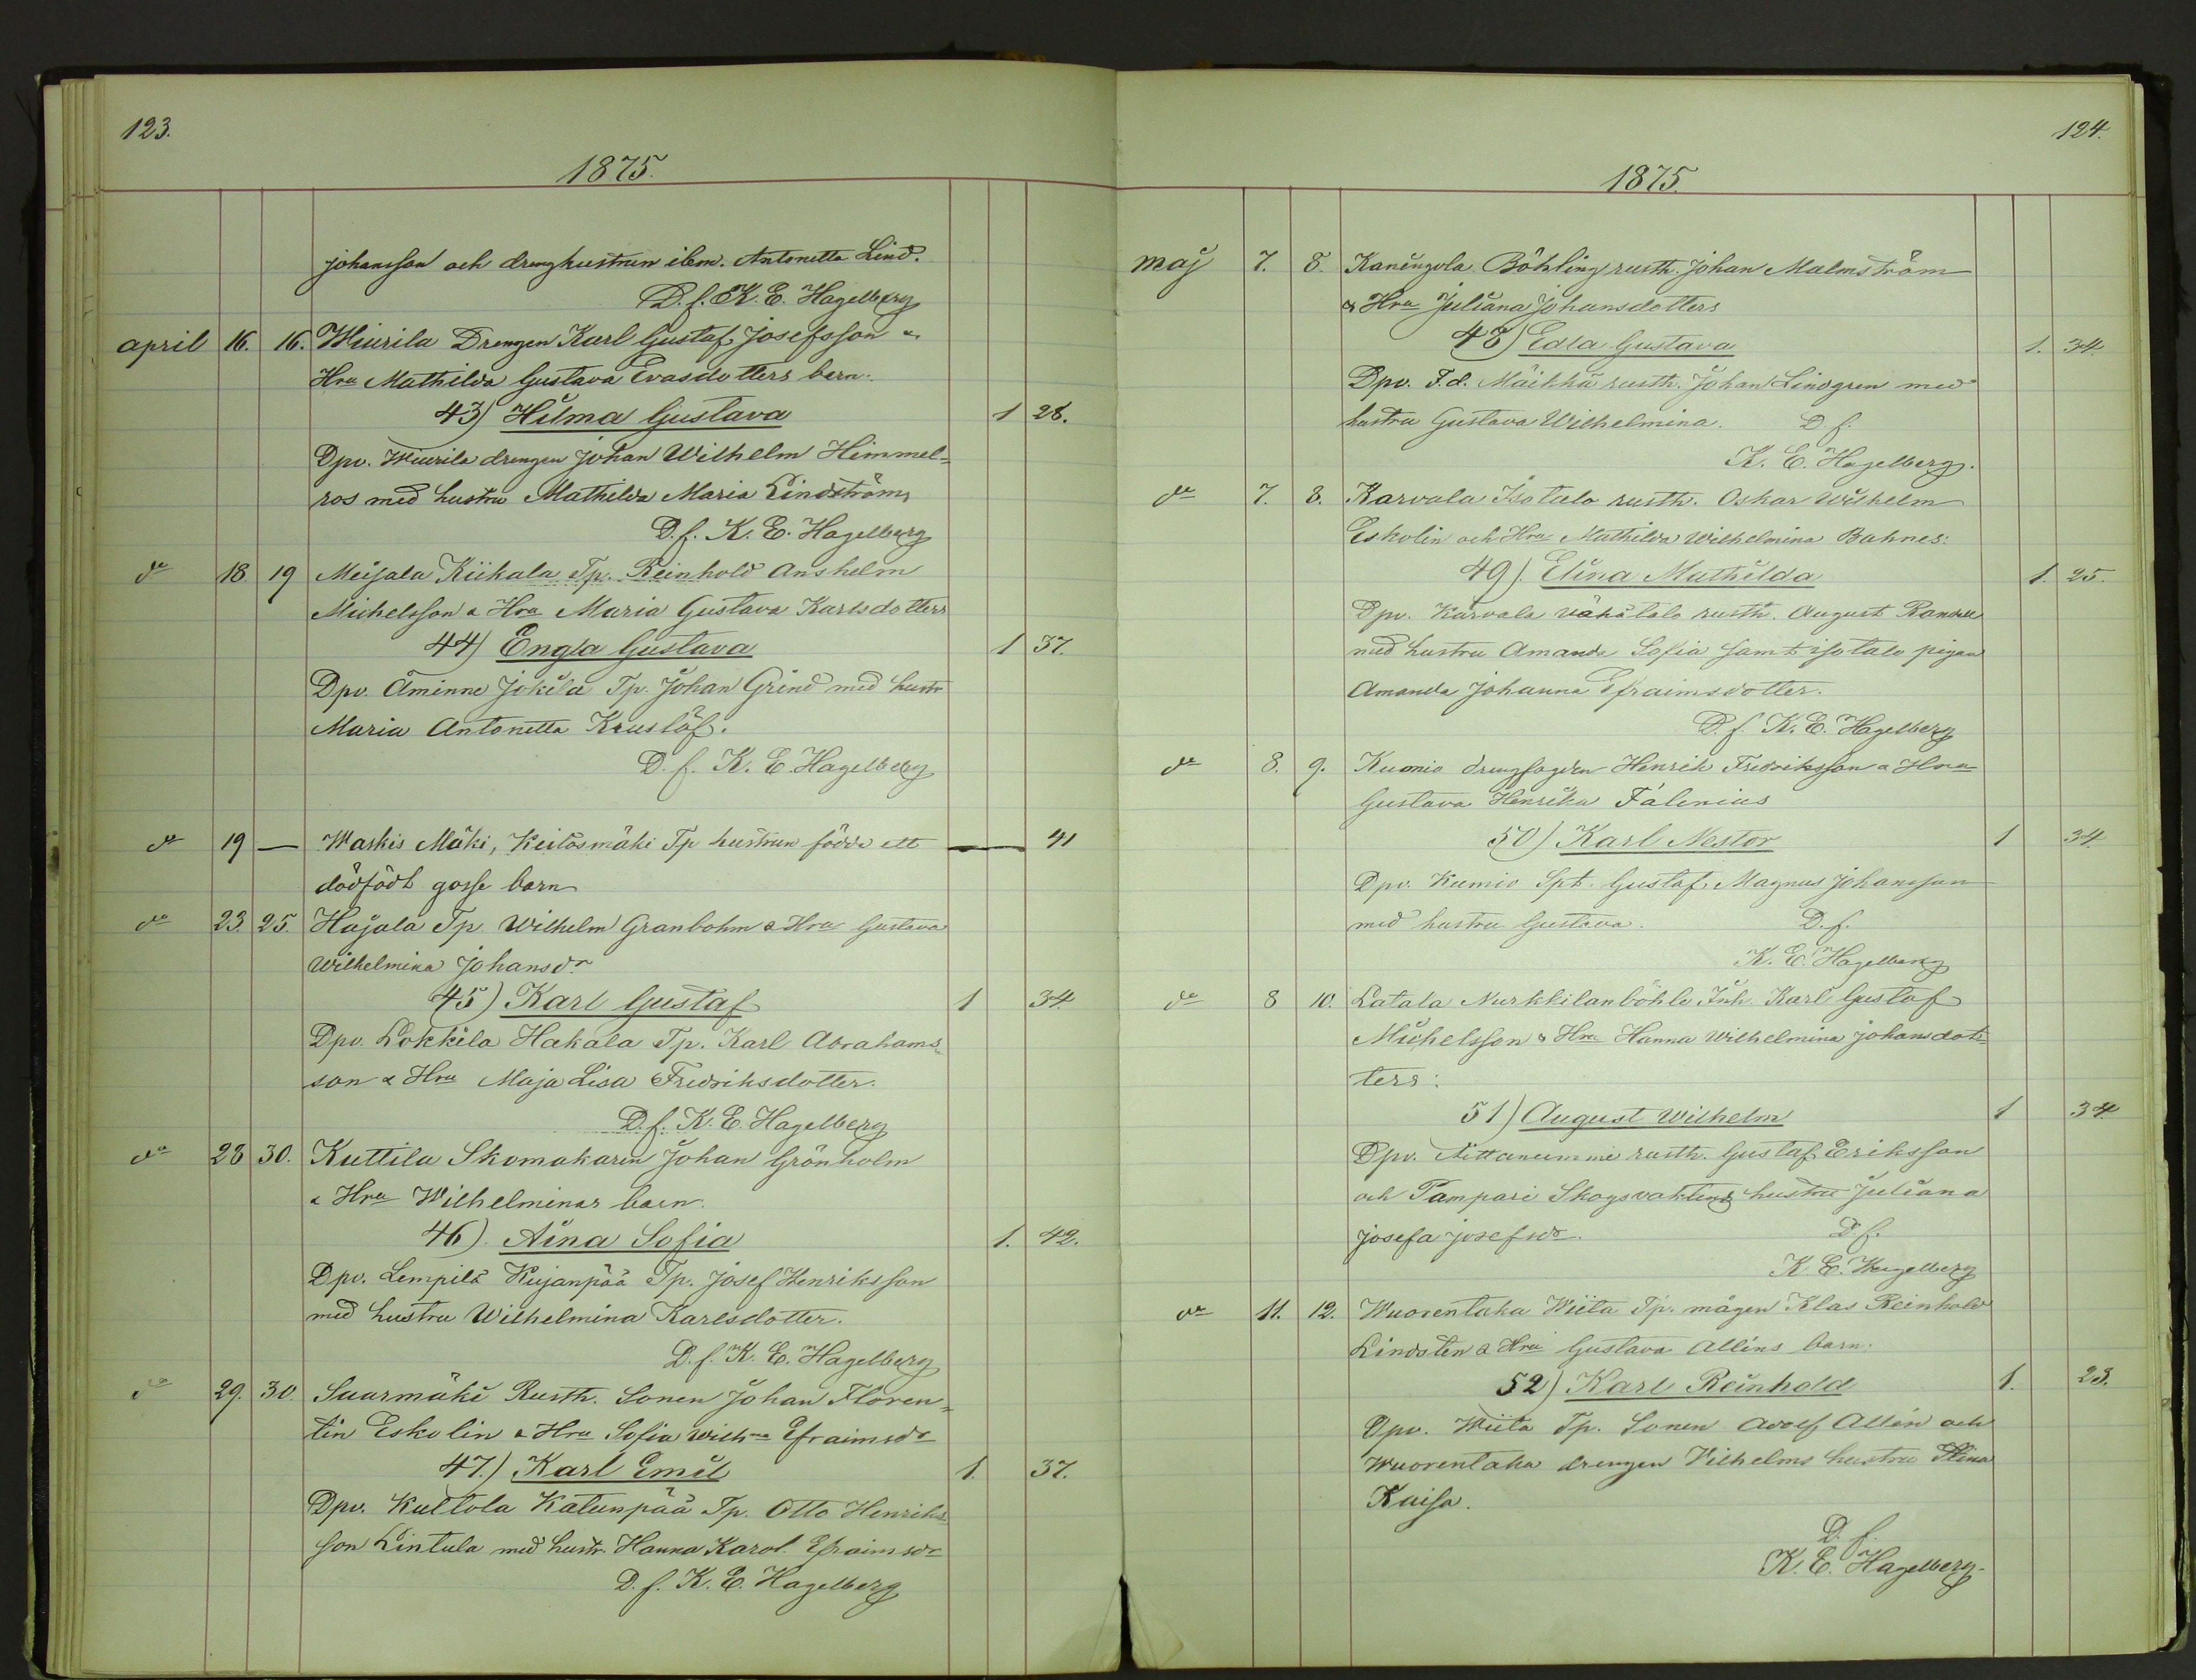 123.
1875.
Johansson och drenghustrun ibm. Antonetta Lind.
D. f. K. E. Hagelberg
april 16. 16. Wiurila Drengen Karl Gustaf Josefsson &
Hru Mathilda Gustava Evasdotters barn.
43) Hilma Gustava 1 28.
Dpv. Wiurila drengen Johan Wilhelm Himmel-
ros med hustru Mathilda Maria Lindström
D. f. K. E. Hagelberg
do 18 19 Meijala Kiikala Tp. Reinhold Anshelm
Michelsson & Hru Maria Gustava Karlsdotters
44) Engla Gustava 1 37.
Dpv. Åminne Jokila Tp. Johan Grind med hustr
Maria Antonetta Kruslöf.
D. f. K. E. Hagelberg
do 19 — Waskis Mäki, Keitosmäki Tp hustrun födde ett — 41
dödfödt gosse barn
do 23. 25. Hajala Tp. Wilhelm Granbohm & Hru Gustava
Wilhelmina Johansdr
45) Karl Gustaf 1 34.
Dpv. Lokkila Hakala Tp. Karl Abrahams-
son & Hru Maja Lisa Fredriksdotter.
D. f. K. E. Hagelberg
do 28 30. Kuttila Skomakaren Johan Grönholm
& Hru Wilhelminas barn.
46). Aina Sofia 1. 42.
Dpv. Lempilä Kujanpää Tp. Josef Henriksson
med hustru Wilhelmina Karlsdotter.
D. f. K. E. Hagelberg
do 29. 30 Suurmäki Rusth. Sonen Johan Floren-
tin Eskolin & Hru Sofia Wilhna Efraimsdr
47.) Karl Emil 1. 37.
Dpv. Kuttola Katunpää Tp. Otto Henriks-
son Lintula med hustr. Hanna Karol. Efraimsdr
D. f. K. E. Hagelberg
124.
1875.
Maj 7. 8. Kaningola Böhling rusth. Johan Malmström
& Hru Juliana Johansdotters
48) Edla Gustava 1. 34.
Dpv. F.d. Mäikkä rusth. Johan Lindgren med
hustru Gustava Wilhelmina. D. f.
K. E. Hagelberg.
do 7. 8. Karvala Isotalo rusth. Oskar Wilhelm
Eskolin och Hru Mathilda Wilhelmina Bahnes:
49). Elina Mathilda 1. 25.
Dpv. Karvala Vähätalo rusth. August
med hustru Amanda Sofia samt isotalo pigan
Amanda Johanna Efraimsdotter.
D. f. K. E. Hagelberg
do 8. 9. Kumio drengfogden Henrik Fredriksson & Hru
Gustava Henrika Falenius
50) Karl Nestor 1 34.
Dpv. Kumio Spt. Gustaf Magnus Johansson
med hustru Gustava. D. f.
K. E. Hagelberg
do 8 10. Latala Nurkkilanböhle Inh. Karl Gustaf
Michelsson & Hru Hanna Wilhelmina Johansdot-
ters:
51) August Wilhelm 1 34
Dpv. rusth. Gustaf Eriksson
och Pampari Skogsvaktens hustru Juliana
Josefa Josefsdr. D. f.
K. E. Hagelberg
do 11. 12. Wuorentaka Wiita Tp. mågen Klas Reinhold
Lindsten & Hru Gustava Alléns barn.
52) Karl Reinhold 1. 23.
Dpv. Wiita Tp. Sonen Adolf Allén och
Wuorentaka drengen Vilhelms hustru Stina
Kaisa.
D. f.
K. E. Hagelberg.